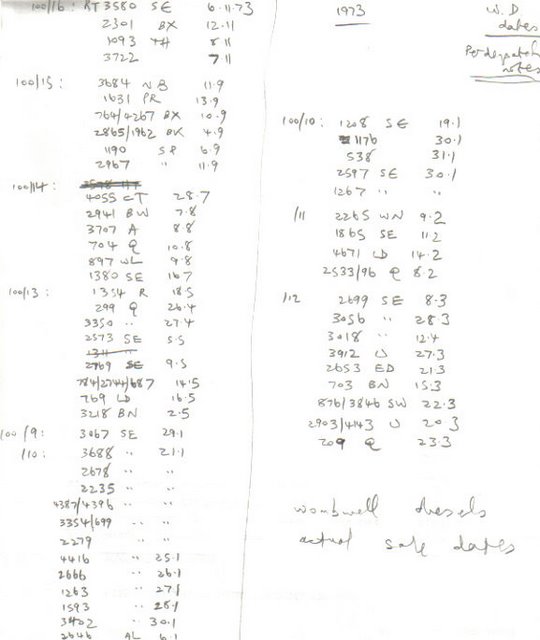 100/16: RT3580 SE 6.11.73
2301 BX 12.11
1093 TH 8.11
3722 7.11
100/15: 3684 NB 11.9
1631 PR 13.9
764/4267 BX 10.9
2865/1962 BK 4.9
1190 SP 6.9
2967 " 11.9
100/14:
4055 CT 28.7
2941 BW 7.8
3707 A 8.8
704 Q 10.8
897 WL 9.8
1380 SE 16.7
100/13: 1354 R 18.5
299 Q 26.4
3350 " 27.4
2573 SE 5.5
1311 "
2769 SE 9.5
784/2744/687 14.5
769 LD 16.5
3218 BN 2.5
100/9: 3067 SE 29.1
/10: 3688 " 21.1
2678 " "
2235 " "
4387/4396 " "
3354/699 " "
2279 " "
4416 " 25.1
2666 " 26.1
1263 " 27.1
1593 " 28.1
3402 " 30.1
2646 AL 6.1
1973
W.D
dates
Per despatch
notes
100/10: 1208 SE 19.1
1176 30.1
538 31.1
2597 SE 30.1
1267 " "
/11 2265 WN 9.2
1865 SE 11.2
4671 LD 14.2
2533/96 Q 8.2
/12 2699 SE 8.3
3056 " 28.3
3018 " 12.4
3912 U 27.3
2653 ED 21.3
703 BN 15.3
876/3846 SW 22.3
2903/4143 U 20.3
209 Q 23.3
wombwell diesels
actual sale dates